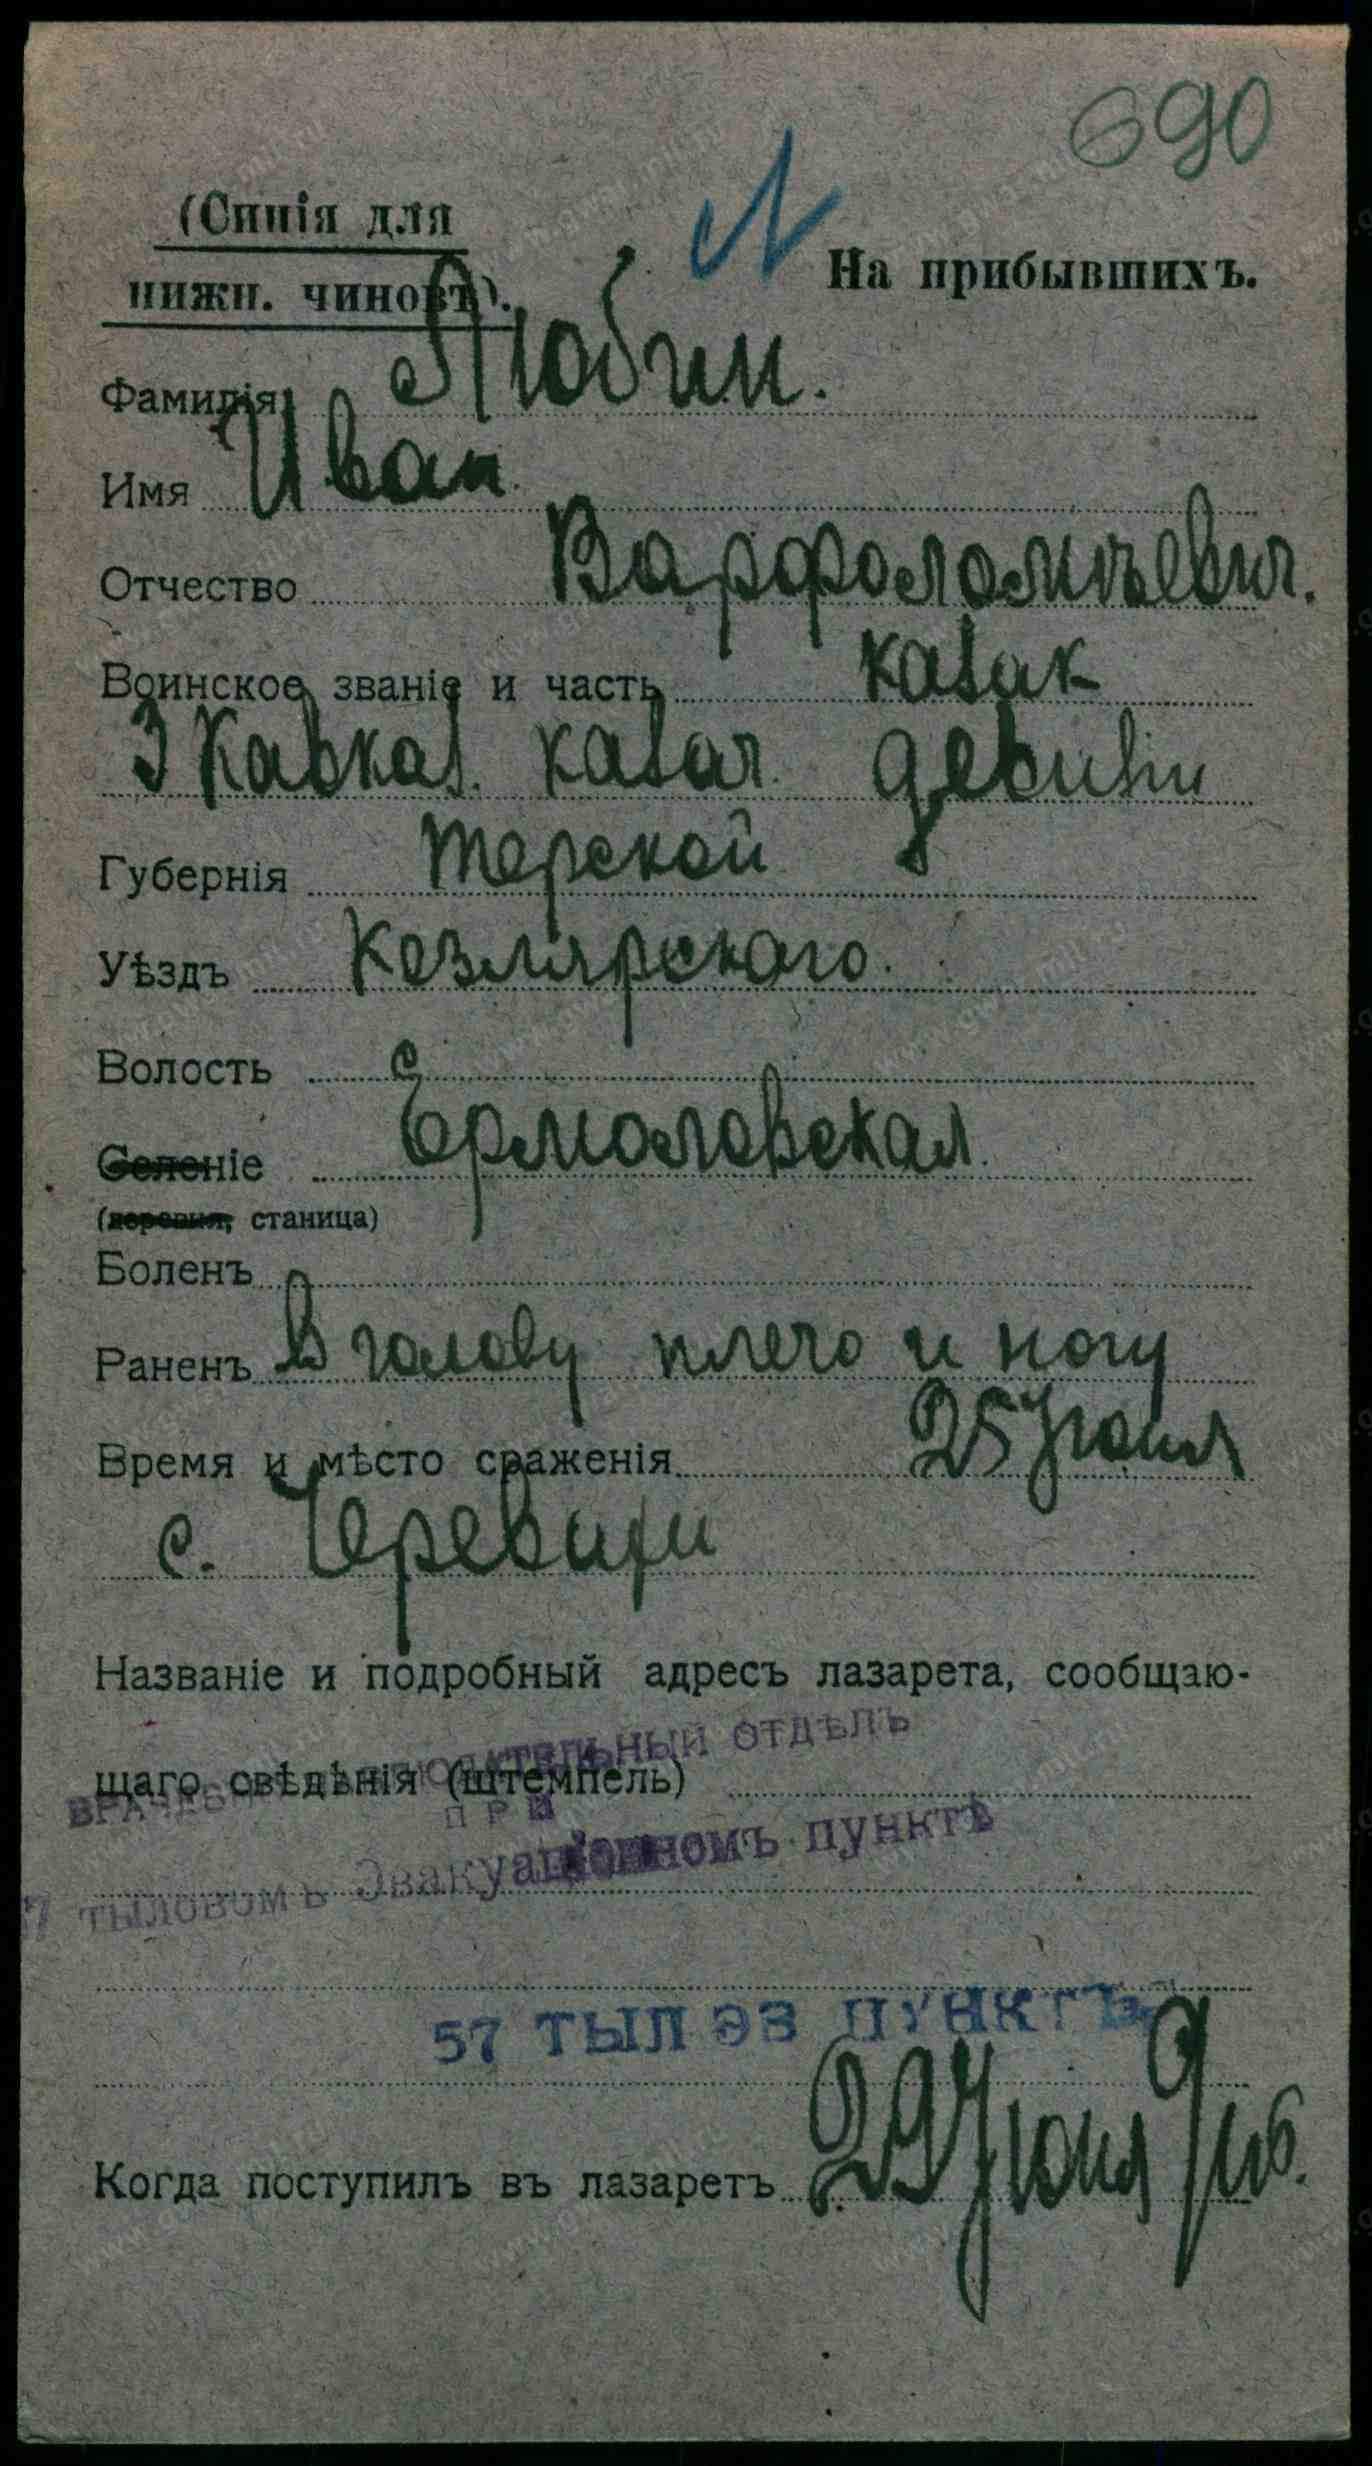 690
(Синія для
N
На прибывшихъ.
нижн. чиновъ).
Фамилія Любин.
Имя Иван
Отчество Варфоломѣевич.
Воинское званіе и часть казак
3 Кавказ. казач. девизіи
Губернія Терской
Уѣздъ Кезлярскаго.
Волость с
Селеніе Ермоловская
(деревня, станица)
Боленъ
Раненъ В голову плечо и ногу
Время и мѣсто сраженія 25 Июня
с.
Названіе и подробный адресъ лазарета, сообщаю-
щаго свѣдѣнія (штемпель)
ВРАЧЕБНО-НАБЛЮДАТЕЛЬНЫЙ ОТДѢЛЪ
ПРИ
7 тыловомъ Эвакуаціонномъ пунктѣ
57 ТЫЛ ЭВ ПУНКТЪ
Когда поступилъ въ лазаретъ 29 Июня 916.